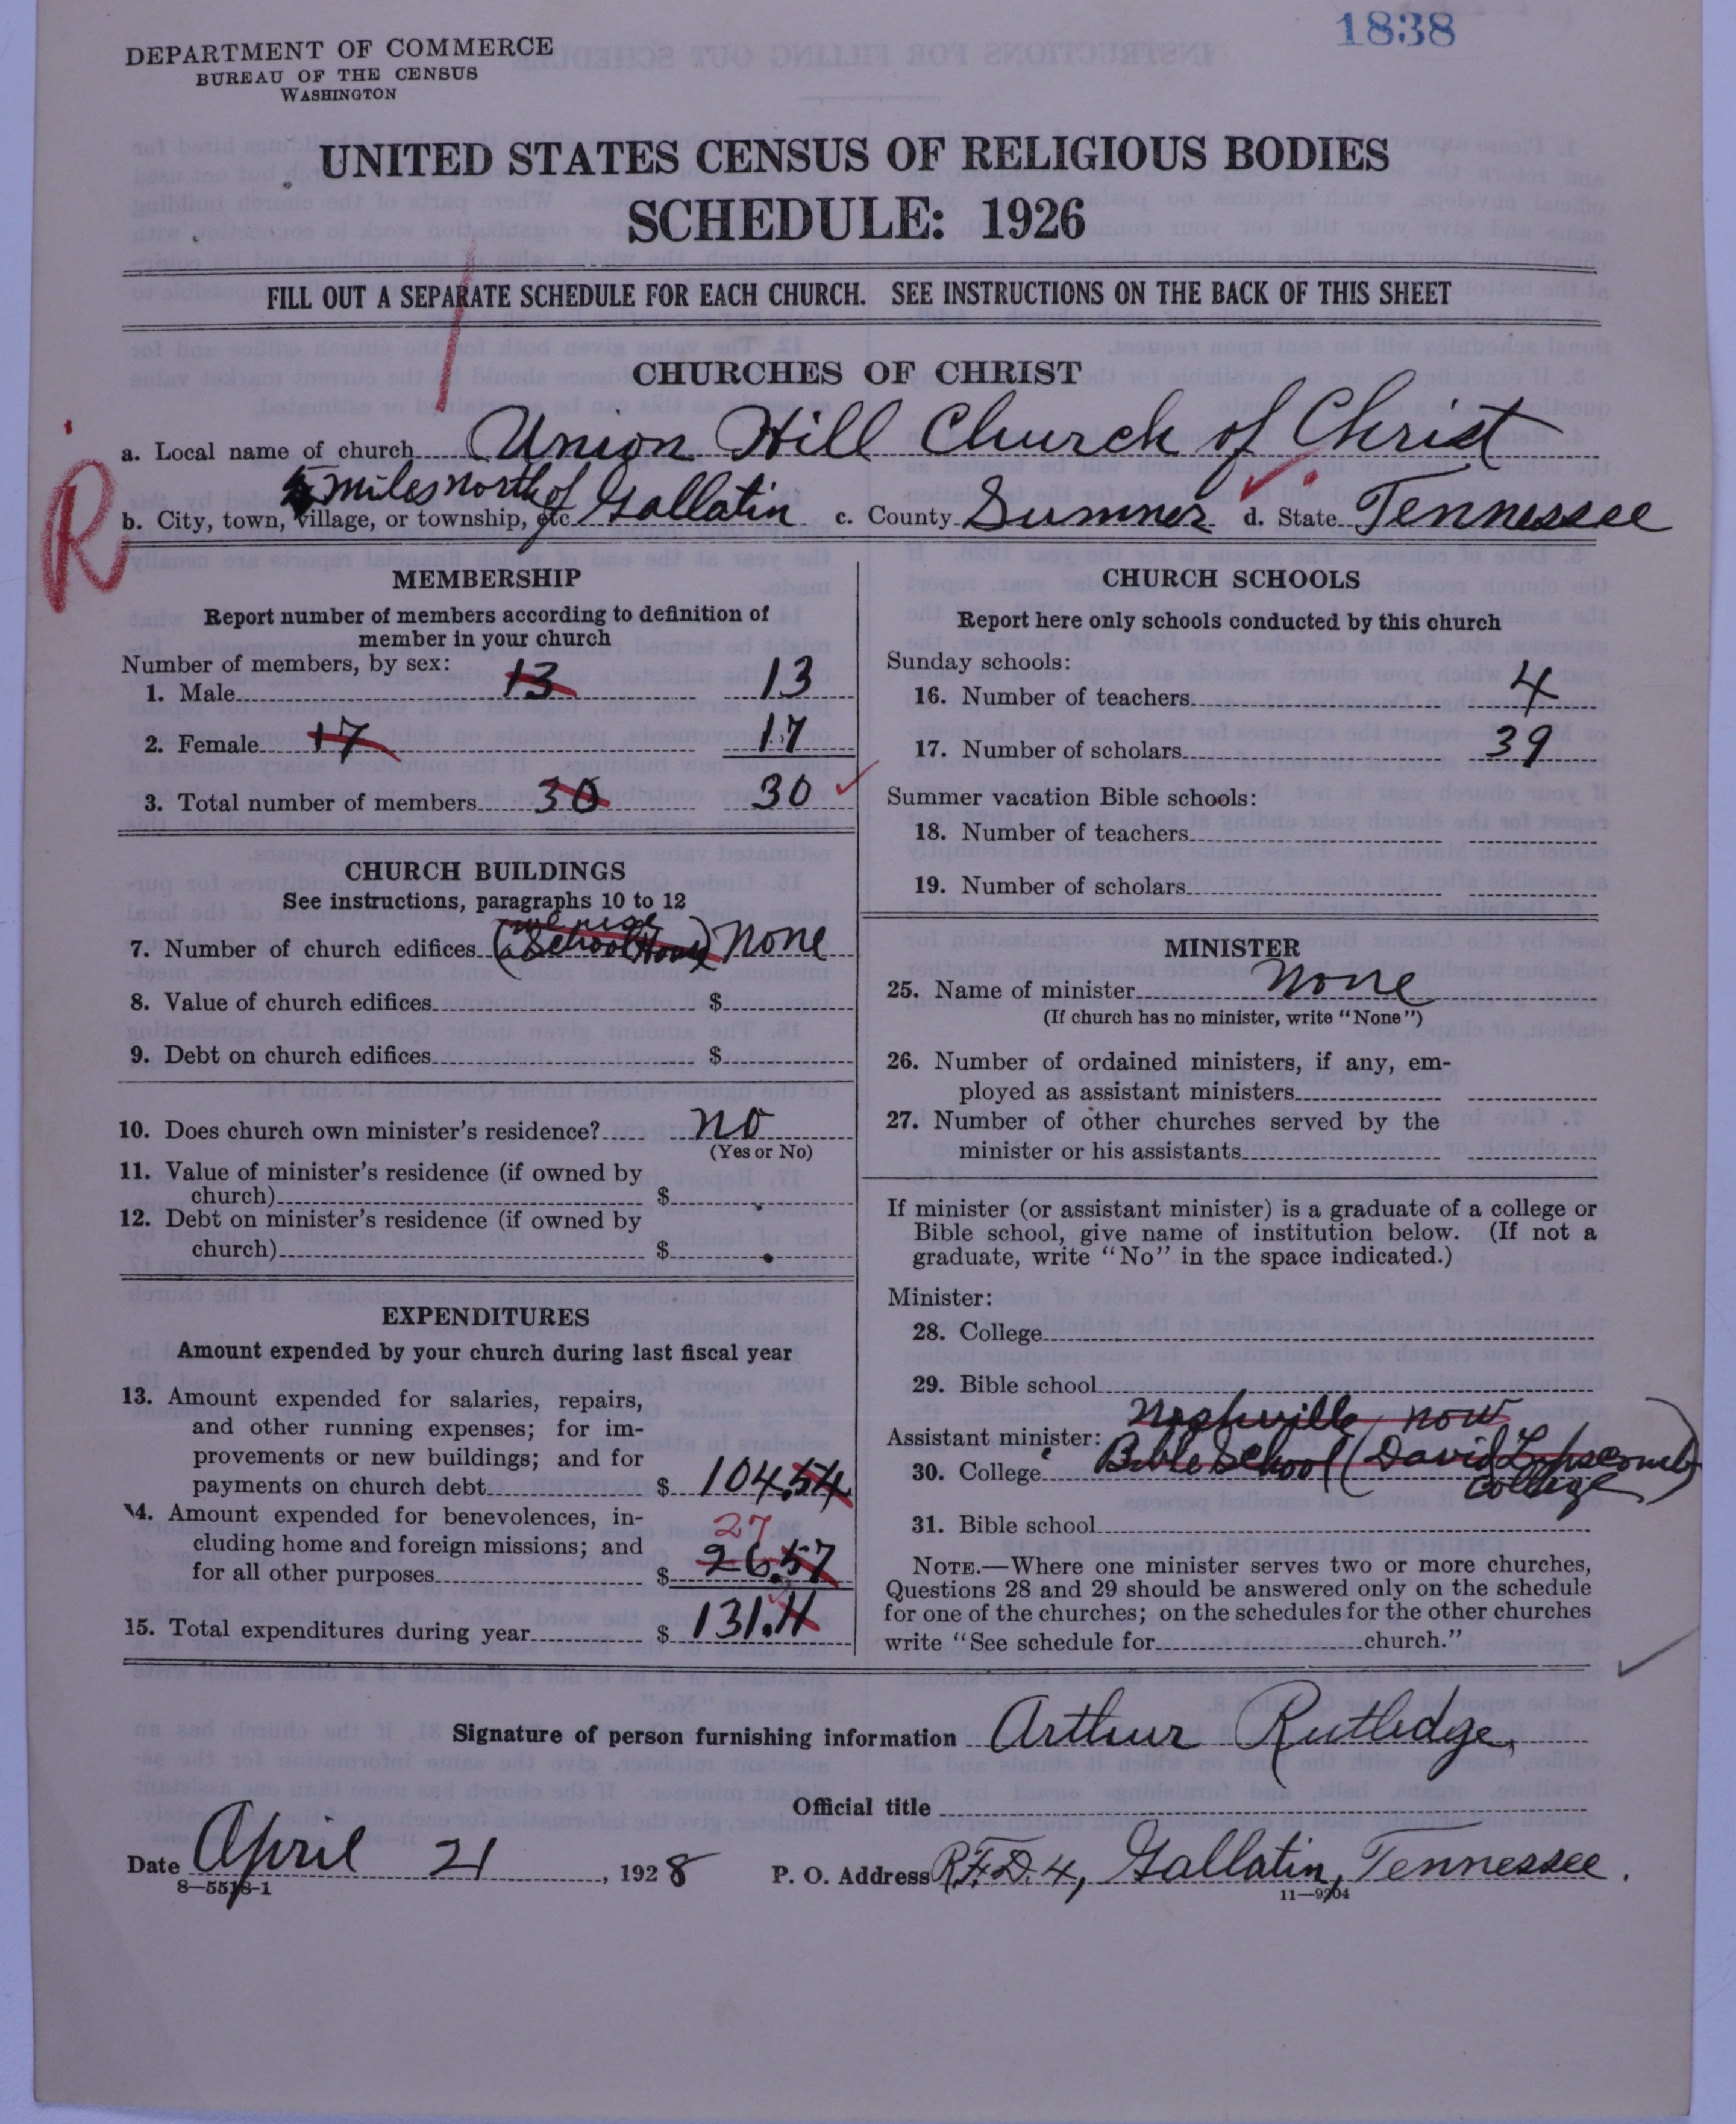 1838
DEPARTMENT OF COMMERCE
BUREAU OF THE CENSUS
WASHINGTON
UNITED STATES CENSUS OF RELIGIOUS BODIES
SCHEDULE: 1926
FILL OUT A SEPARATE SCHEDULE FOR EACH CHURCH. SEE INSTRUCTIONS ON THE BACK OF THIS SHEET
CHURCHES OF CHRIST
a. Local name of church Union Hill Church of Christ
5 miles north of
b. City, town, village, or township, etc. Gallatin c. County Sumner d. State Tennessee
R
MEMBERSHIP
Report number of members according to definition of
member in your church
Number of members, by sex:
1. Male 13 13
2. Female 17 17
3. Total number of members 30 30
CHURCH BUILDINGS
See instructions, paragraphs 10 to 12
we use
7. Number of church edifices (a School House) None
8. Value of church edifices $
9. Debt on church edifices $
10. Does church own minister's residence? No
(Yes or No)
11. Value of minister's residence (if owned by
church) $
12. Debt on minister's residence (if owned by
church) $
EXPENDITURES
Amount expended by your church during last fiscal year
13. Amount expended for salaries, repairs,
and other running expenses; for im-
provements or new buildings; and for
payments on church debt $ 104.54
14. Amount expended for benevolences, in-
cluding home and foreign missions; and 27
for all other purposes $ 26.57
15. Total expenditures during year $ 131.11
CHURCH SCHOOLS
Report here only schools conducted by this church
Sunday schools:
16. Number of teachers 4
17. Number of scholars 39
Summer vacation Bible schools:
18. Number of teachers
19. Number of scholars
MINISTER
25. Name of minister None
(If church has no minister, write "None")
26. Number of ordained ministers, if any, em-
ployed as assistant ministers
27. Number of other churches served by the
minister or his assistants
If minister (or assistant minister) is a graduate of a college or
Bible school, give name of institution below. (If not a
graduate, write "No" in the space indicated.)
Minister:
28. College
29. Bible school
Nashville now
Assistant minister:
30. College Bible School (David Lipscomb
College)
31. Bible school
NOTE.—Where one minister serves two or more churches,
Questions 28 and 29 should be answered only on the schedule
for one of the churches; on the schedules for the other churches
write "See schedule for church."
Signature of person furnishing information Arthur Rutledge,
Official title
Date April 21, 1928 P. O. Address R.F.D. 4, Gallatin, Tennessee.
8—5518-1
11—9204